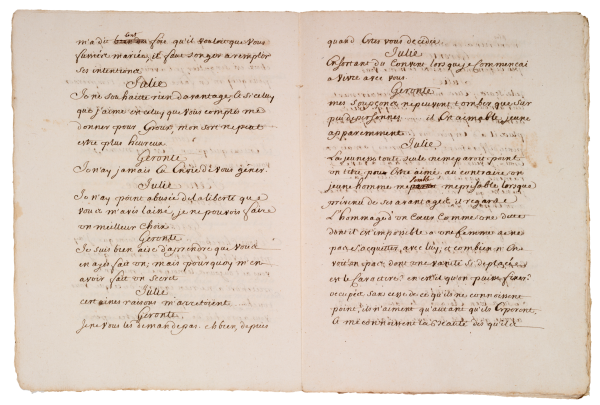 m'a dit cent fois qu'il vouloit que vous
fussiez mariée, il faut songer a remplir
ses intentions
Julie
Je ne souhaitte rien davantage, et si celuy
que j'aime est celuy que vous comptés me
donner pour Epoux, mon sort ne peut
estre plus heureux.
Geronte
Je n'ay jamais eu Envie de vous gêner.
Julie
Je n'ay point abusée de la liberté que
vous m'avés laissé, je ne pouvois faire
un meilleur choix
Geronte
Je suis bien aise d'apprendre que vous
en ayés fait un; mais pourquoy m'en
avoir fait un secret
Julie
certaines raisons m'arretoient
Geronte.
Je ne vous les demande pas. eh bien, depuis
quand Estes vous decidée
Julie
En sortant du Convent lorsque je commençai
a vivre avec vous
Geronte
mes soupçons ne peuvent tomber que sur
peu de personnes il est aimable, jeune
apparemment
Julie
La jeunesse toute seule ne me paroit point
un titre pour Estre aimé au contraire un
jeune homme me semble meprisable lorsque
prévenu de ses avantages il regarde
L'hommage d'un Coeur Comme une dette
dont il est impossible a une femme de ne
pas s'acquitter avec luy; et combien n'En
voit on pas, dont une vanité si deplacée
est le Caractere? en est il qu'on puisse fixer?
occupés sans cesse de ce qu'ils ne connoissent
point, ils n'aiment qu'autant qu'ils Esperent,
Et meconnoissent la beauté dès qu'ils